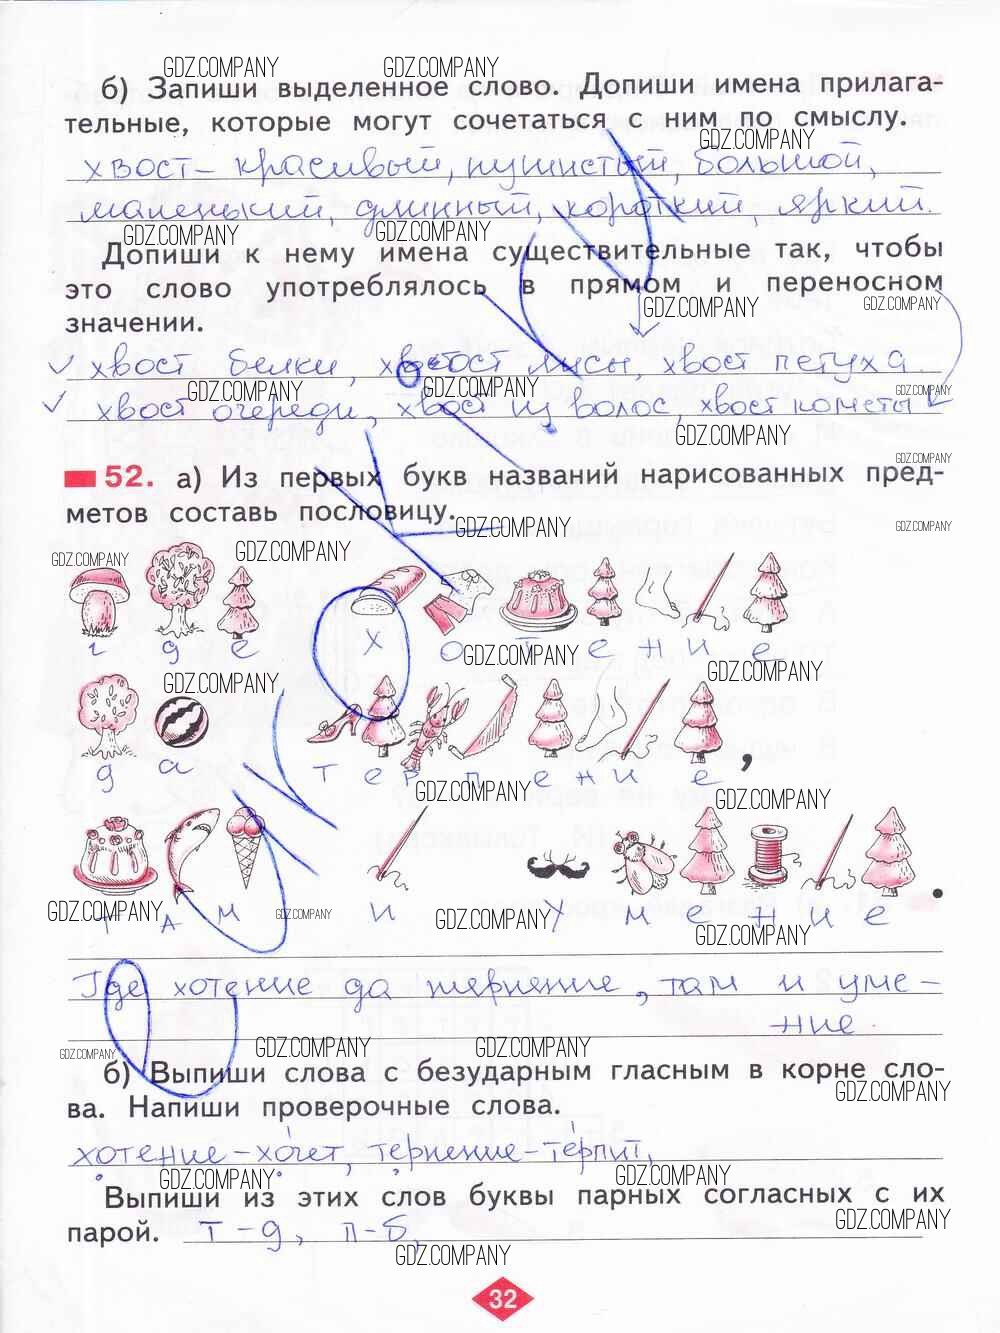 GDZ.COMPANY GDZ.COMPANY
б) Запиши выделенное слово. Допиши имена прилага-
тельные, которые могут сочетаться с ним по смыслу.
GDZ.COMPANY
хвост – красивый, пушистый, большой,
маленький, длинный, короткий, яркий.
GDZ.COMPANY GDZ.COMPANY
Допиши к нему имена существительные так, чтобы
это слово употреблялось в прямом и переносном
GDZ.COMPANY GDZ.COMPANY
значении.
хвост белки, хвост лисы, хвост петуха.
GDZ.COMPANY GDZ.COMPANY GDZ.COMPANY
хвост очереди, хвост из волос, хвост кометы
GDZ.COMPANY
GDZ.COMPANY
52. а) Из первых букв названий нарисованных пред-
метов составь пословицу.
GDZ.COMPANY GDZ.COMPANY
GDZ.COMPANY GDZ.COMPANY
г д е х о т е н и е
GDZ.COMPANY GDZ.COMPANY
GDZ.COMPANY
д а т е р п е н и е ,
GDZ.COMPANY GDZ.COMPANY
т а м и у м е н и е .
GDZ.COMPANY GDZ.COMPANY GDZ.COMPANY
GDZ.COMPANY
Где хотение да терпение, там и уме–
ние.
GDZ.COMPANY GDZ.COMPANY GDZ.COMPANY
б) Выпиши слова с безударным гласным в корне сло-
GDZ.COMPANY
ва. Напиши проверочные слова.
хотение – хочет, терпение – терпит,
GDZ.COMPANY GDZ.COMPANY
Выпиши из этих слов буквы парных согласных с их
GDZ.COMPANY
парой. т – д, п – б,
GDZ.COMPANY
32